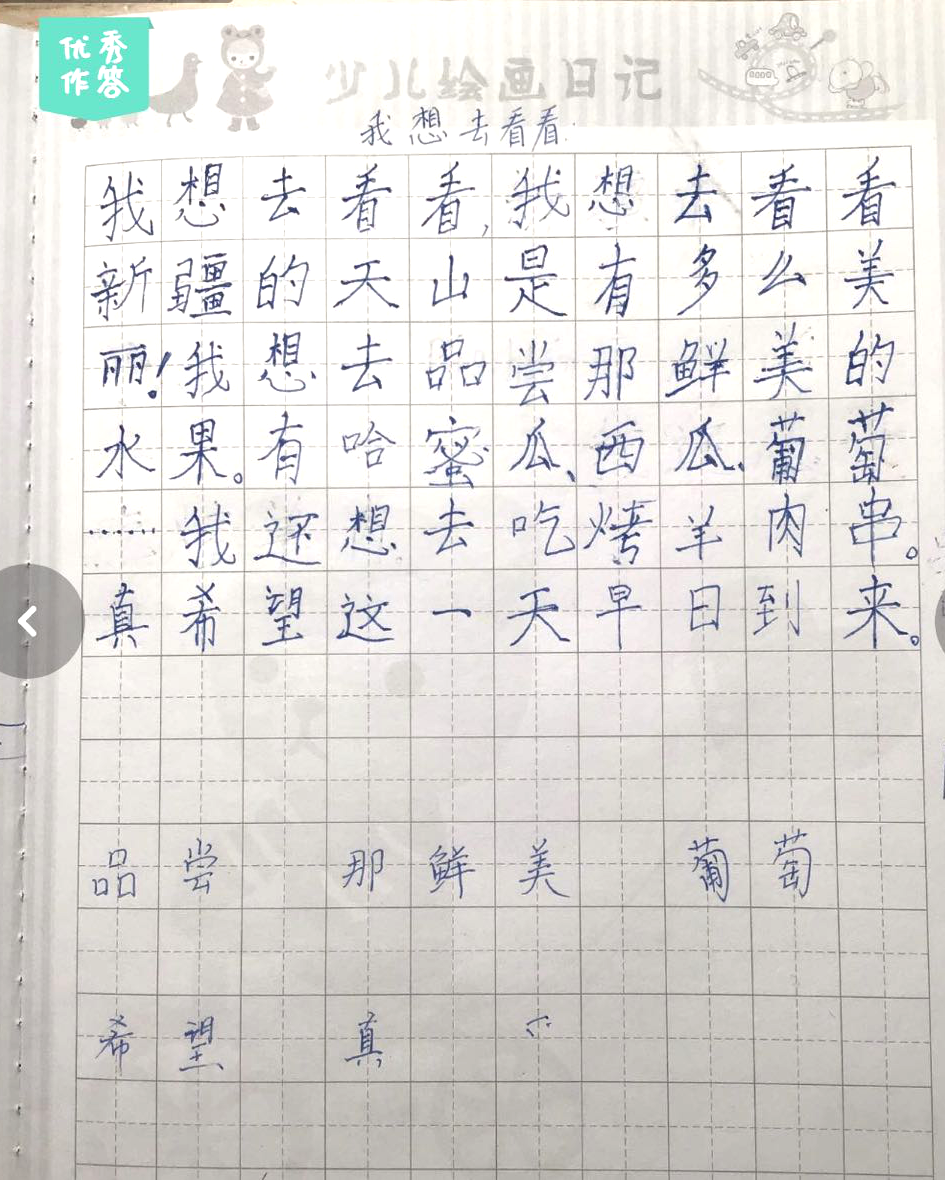 优秀
作答
少儿绘画日记
我想去看看.
我想去看看,我想去看看
新疆的天山是有多么美
丽!我想去品尝那鲜美的
水果。有哈蜜瓜、西瓜、葡萄
……我还想去吃烤羊肉串。
真希望这一天早日到来。
品尝 那鲜美 葡萄
希望 真